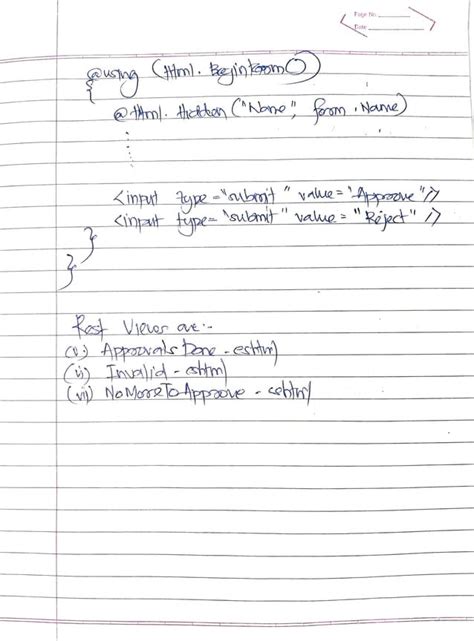 Page No.
Date
@using (Html. BeginForm())
{
@Html. Hidden ("Name", form .Name)
<input type="submit" value="Approve"/>
<input type="submit" value="Reject" />
}
}
Rest Views are:-
(v) ApprovalsDone - cshtml
(vi) Invalid - cshtml
(vii) NoMoreToApprove - cshtml